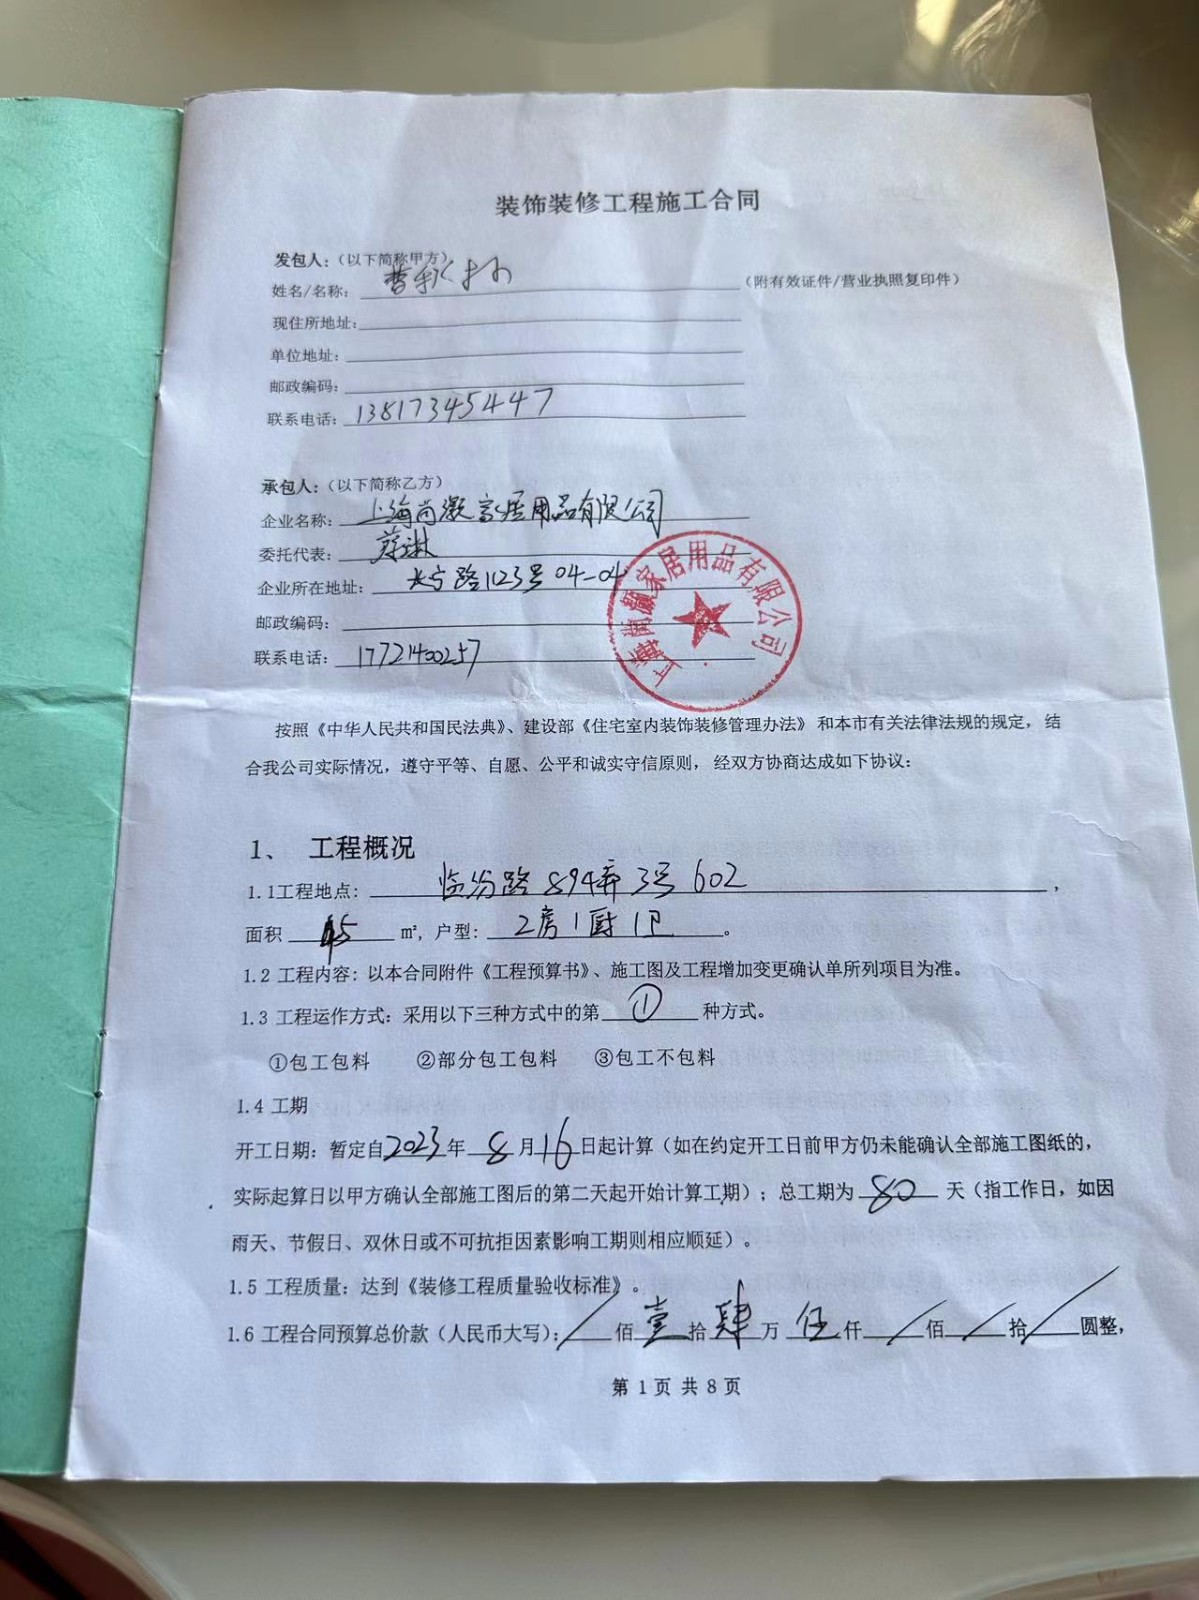 装饰装修工程施工合同
发包人：（以下简称甲方）
姓名/名称：曹秋 （附有效证件/营业执照复印件）
现住所地址：
单位地址：
邮政编码：
联系电话：13817345447
承包人：（以下简称乙方）
企业名称：上海尚灏家居用品有限公司
委托代表：
企业所在地址：长宁路1123号04-04
邮政编码：
联系电话：17721400257
上海尚灏家居用品有限公司
按照《中华人民共和国民法典》、建设部《住宅室内装饰装修管理办法》和本市有关法律法规的规定，结
合我公司实际情况，遵守平等、自愿、公平和诚实守信原则，经双方协商达成如下协议：
1、 工程概况
1.1工程地点：临汾路894弄3号602，
面积 45 m²，户型：2房1厨1卫。
1.2 工程内容：以本合同附件《工程预算书》、施工图及工程增加变更确认单所列项目为准。
1.3 工程运作方式：采用以下三种方式中的第①种方式。
①包工包料 ②部分包工包料 ③包工不包料
1.4 工期
开工日期：暂定自2023年8月16日起计算（如在约定开工日前甲方仍未能确认全部施工图纸的，
实际起算日以甲方确认全部施工图后的第二天起开始计算工期）；总工期为80天（指工作日，如因
雨天、节假日、双休日或不可抗拒因素影响工期则相应顺延）。
1.5 工程质量：达到《装修工程质量验收标准》。
1.6 工程合同预算总价款（人民币大写）：/佰壹拾肆万伍仟/佰/拾/圆整，
第 1 页 共 8 页